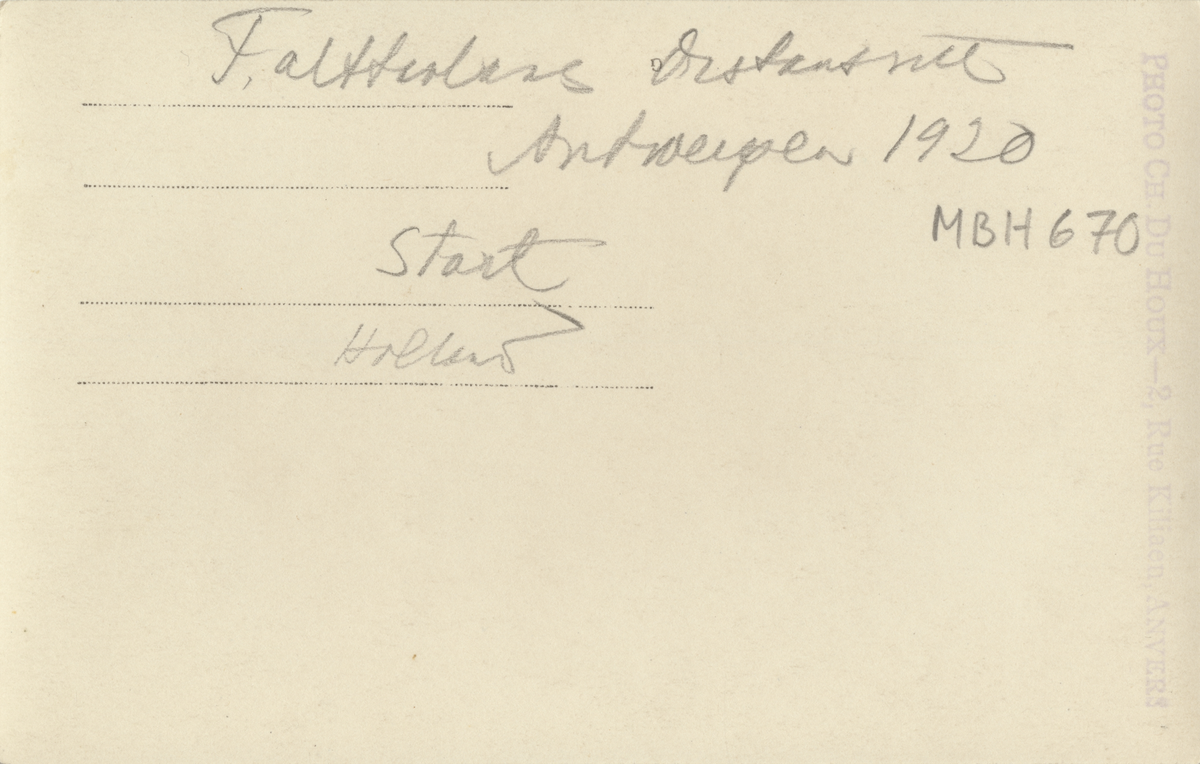 Fälttävlans Distansritt
Antwerpen 1920
MBH 670
Start
Holland
PHOTO CH. DU HOUX—2, Rue Kiliaen, ANVERS